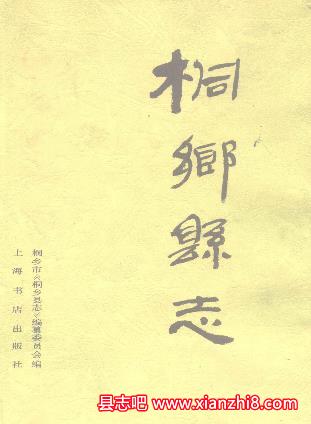 桐鄉縣志
桐乡市《桐乡县志》编纂委员会编
上海书店出版社
县志吧 www.xianzhi8.com